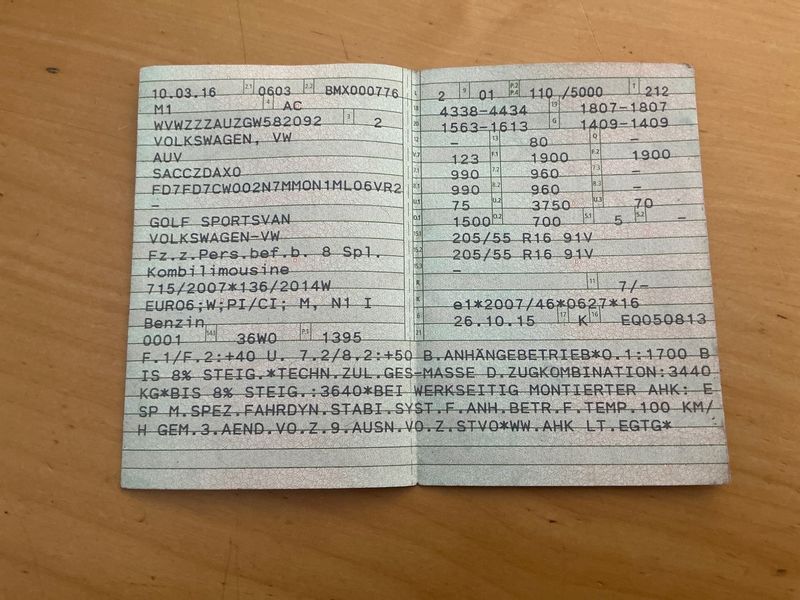 10.03.16 2.1 0603 2.2 BMX000776
M1 4 AC
WVWZZZAUZGW582092 3 2
VOLKSWAGEN, VW
AUV
SACCZDAX0
FD7FD7CW002N7MMON1ML06VR2
–
GOLF SPORTSVAN
VOLKSWAGEN-VW
Fz.z.Pers.bef.b. 8 Spl.
Kombilimousine
715/2007*136/2014W
EURO6;W;PI/CI; M, N1 I
Benzin
0001 14.1 36W0 P.1 1395
L 2 9 01 P.2 P.4 110 /5000 T 212
18 4338-4434 19 1807-1807
20 1563-1613 G 1409-1409
12 – 13 80 Q –
V.7 123 F.1 1900 F.2 1900
7.1 990 7.2 960 7.3 –
8.1 990 8.2 960 8.3 –
U.1 75 U.2 3750 U.3 70
O.1 1500 O.2 700 S.1 5 S.2 –
15.1 205/55 R16 91V
15.2 205/55 R16 91V
15.3 –
R 11 7/–
K e1*2007/46*0627*16
6 26.10.15 17 K 16 EQ050813
21
F.1/F.2:+40 U. 7.2/8.2:+50 B.ANHÄNGEBETRIEB*O.1:1700 B
IS 8% STEIG.*TECHN.ZUL.GES-MASSE D.ZUGKOMBINATION:3440
KG*BIS 8% STEIG.:3640*BEI WERKSEITIG MONTIERTER AHK: E
SP M.SPEZ.FAHRDYN.STABI.SYST.F.ANH.BETR.F.TEMP.100 KM/
H GEM.3.AEND.VO.Z.9.AUSN.VO.Z.STVO*WW.AHK LT.EGTG*